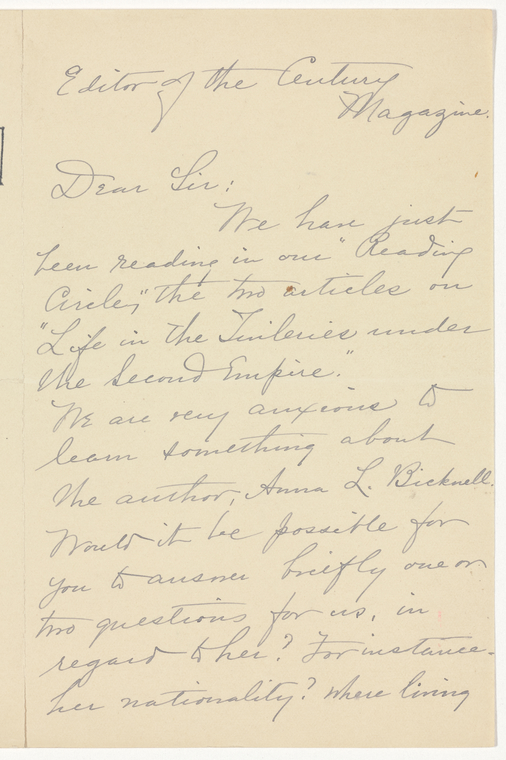 Editor of the Century
Magazine.
Dear Sir:
We have just
been reading in our "Reading
Circle," the two articles on
"Life in the Tuileries under
the Second Empire."
We are very anxious to
learn something about
the author, Anna L. Bicknell.
Would it be possible for
you to answer briefly one or
two questions for us, in
regard to her? For instance-
her nationality? where living